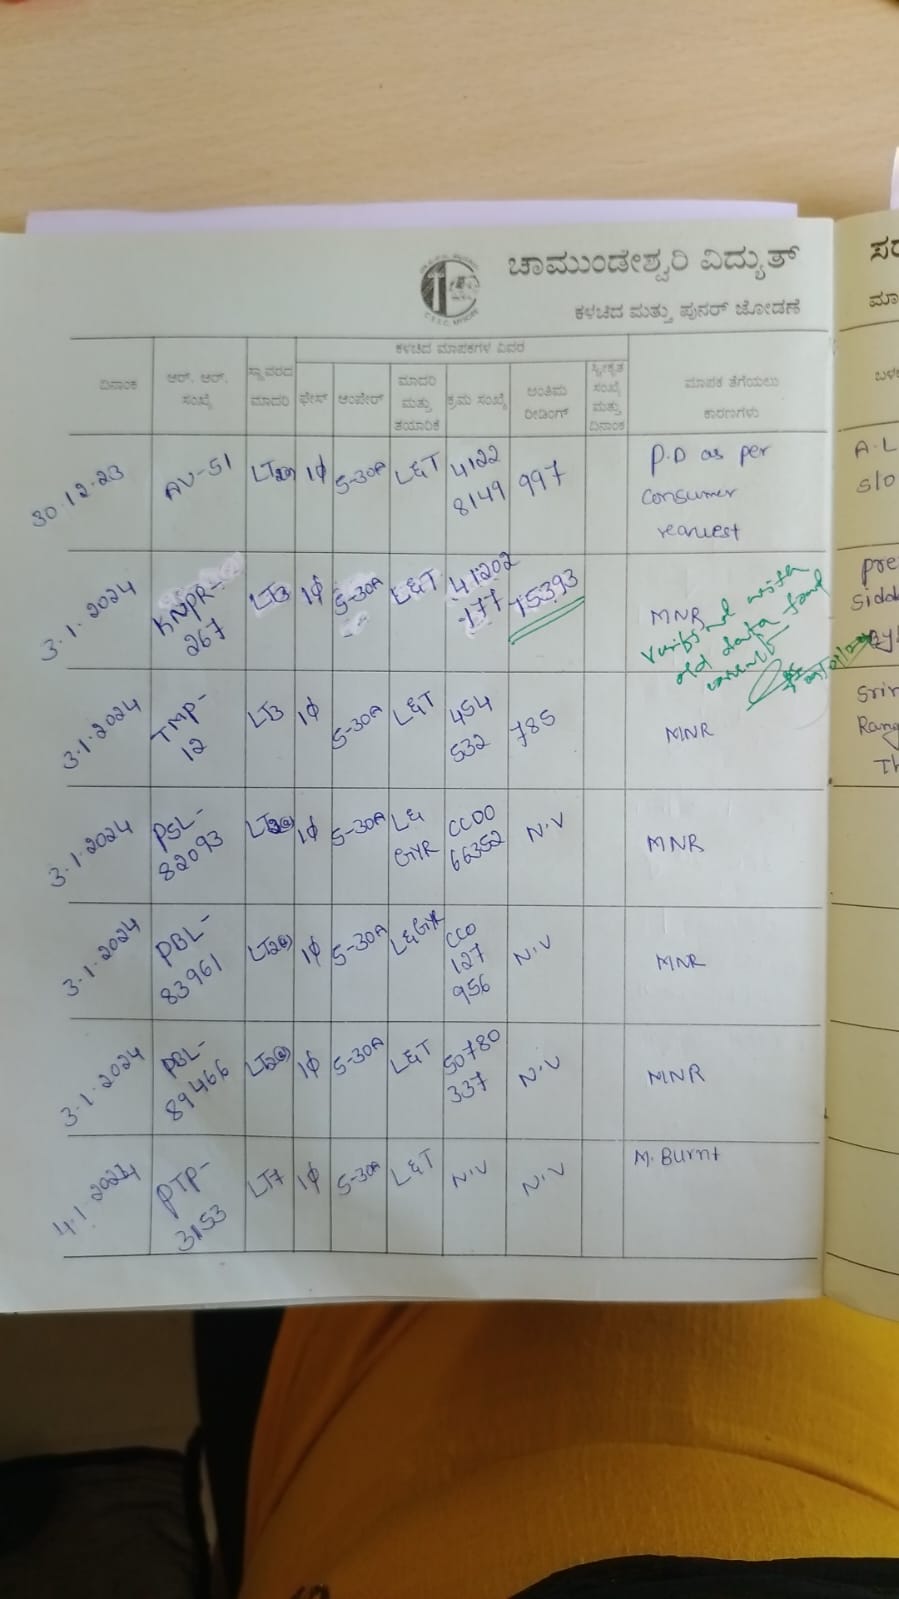 ಚಾಮುಂಡೇಶ್ವರಿ ವಿದ್ಯುತ್
ಕಳಚಿದ ಮತ್ತು ಪುನರ್ ಜೋಡಣೆ
ಕಳಚಿದ ಮಾಪಕಗಳ ವಿವರ
ದಿನಾಂಕ
ಆರ್. ಆರ್.
ಸಂಖ್ಯೆ
ಸ್ಥಾವರದ
ಮಾದರಿ
ಫೇಸ್
ಆಂಪೇರ್
ಮಾದರಿ
ಮತ್ತು
ತಯಾರಿಕೆ
ಕ್ರಮ ಸಂಖ್ಯೆ
ಅಂತಿಮ
ರೀಡಿಂಗ್
ಸ್ವೀಕೃತ
ಸಂಖ್ಯೆ
ಮತ್ತು
ದಿನಾಂಕ
ಮಾಪಕ ತೆಗೆಯಲು
ಕಾರಣಗಳು
30.12.23
AV-51
1φ
5-30A
L&T
4122
8149
997
P.D as per
consumer
request
3.1.2024
KNPR-
267
LT3
1φ
5-30A
L&T
41202
177
15393
MNR
old data
3.1.2024
TMP-
12
LT3
1φ
5-30A
L&T
454
532
785
MNR
3.1.2024
PSL-
82093
1φ
5-30A
L&
GYR
CCDO
66352
N.V
MNR
3.1.2024
PBL-
83961
LT2(a)
1φ
5-30A
L&GYR
CCO
127
956
N.V
MNR
3.1.2024
PBL-
89466
LT2(a)
1φ
5-30A
L&T
50780
337
N.V
MNR
4.1.2024
PTP-
3153
LT7
1φ
5-30A
L&T
N.V
N.V
M. Burnt
A.L
S/o